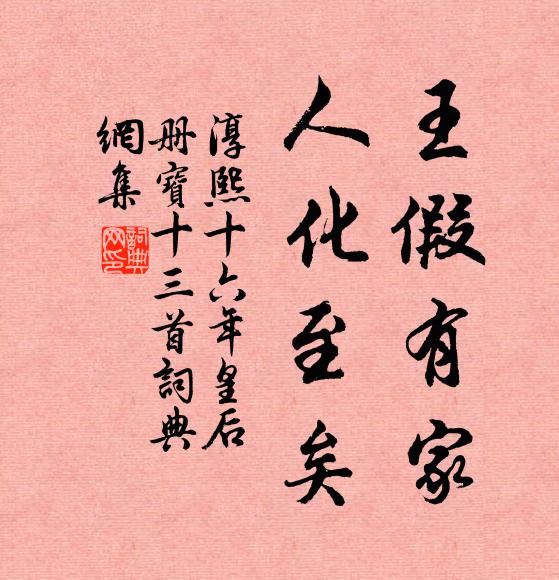 王假有家
人化至矣
淳熙十六年皇后
册寶十三首詞典
網集
詞典
网印